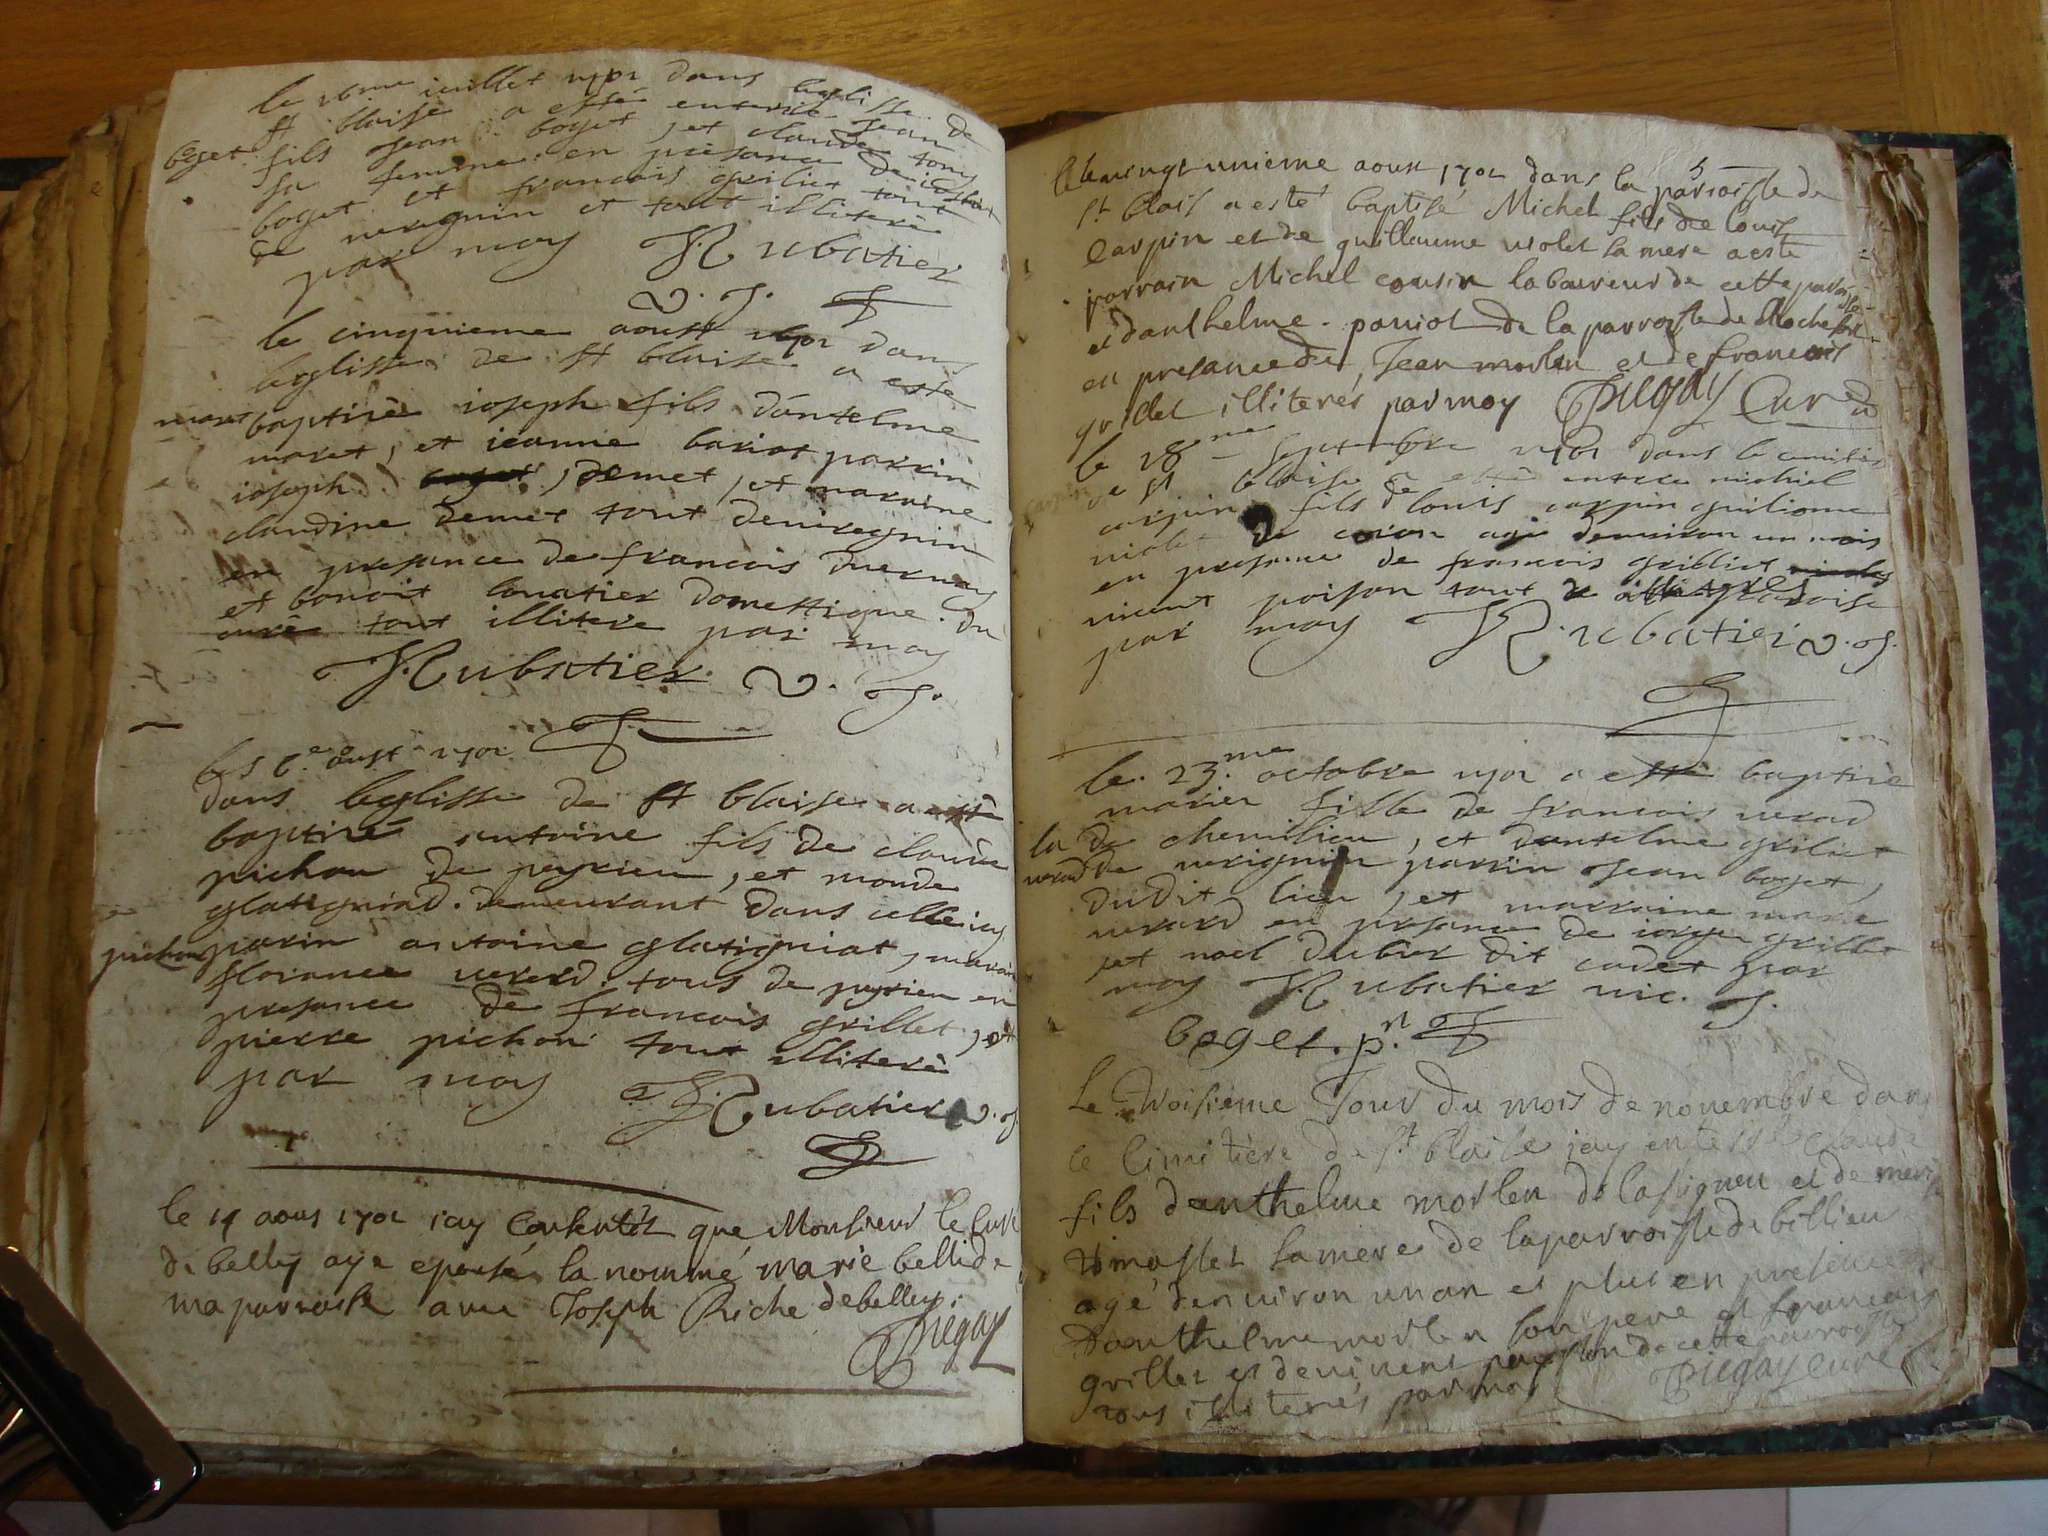 le 26me iuillet 1702 dans leglisse de
st blaise a esté enterré Jean
boget fils Jean boget, et claude
sa femme en presance de
boget et francois grilliet tout
de verignin et tout illiterè
par moy Rubatier
v. J.
le cinquieme aoust 1702 dans
leglisse de st blaise a este
moret baptisè ioseph fils dantelme
moret, et ieanne bariot parrin
ioseph demet, et marrine
claudine demet tout deniregnin
en presance de francois
et benoit domestique du
curèe tout illitere par moy
Rubatier v. J.
les 6e aust 1702
dans leglisse de st blaise a estè
baptisé antoine fils de claude
pichon de peyrieu, et monde
glatigniad demeurant dans
pichon parin antoine glatigniat, marrine
florance verard tous de peyrieu en
presance de francois grillet, et
pierre pichon tout illiterè
par moy Rubatier v. J.
le 14 aous 1702 iay Consentit que Monsieur le Cure
de belley aye epousé la nommé marie belli de
ma parroisse avec Joseph Riche debelley.
Pregay
le vingt unieme aoust 1702 dans la parroisse de
st blais a esté baptisé Michel fils de Louis
Carpin et de guillaume violet sa mere a esté
parrain Michel cousin laboureur de cette paroisse
et danthelme paviot de la parroisse de Rochefort
en presance de Jean morlen et de francois
grillet illiterés par moy Pregay Curé
le 28me septembre 1702 dans le cemitier
carpin de st blaise a estè enterre michiel
carpin fils de louis carpin guiliome
violet de coron agé denviron un mois
en presance de francois grilliet
vincent poison tout de
par moy Rubatier v. J.
le 23.me octobre 1702 a estè baptisè
marien fille de francois verard
la de chemilieu, et dantelme griliet
verard de verignin parrin Jean boget,
dudit lieu, et marraine marie
verard en presance de iorge grillet
et noel dubier dit cadet par
moy Rubatier vic. J.
boget. p.n
Le troisieme Jour du mois de novembre dans
le cimitiere de st blaise iay enterré claude
fils danthelme morlen de Lassigneu et de merie
timosset sa mere de la parroisse de billieu
agé denviron un an et plus en presence
danthelme morlen son pere et francois
grillet et de vincent poysson de cette parroisse
tous illiterés par moy Pregay curé